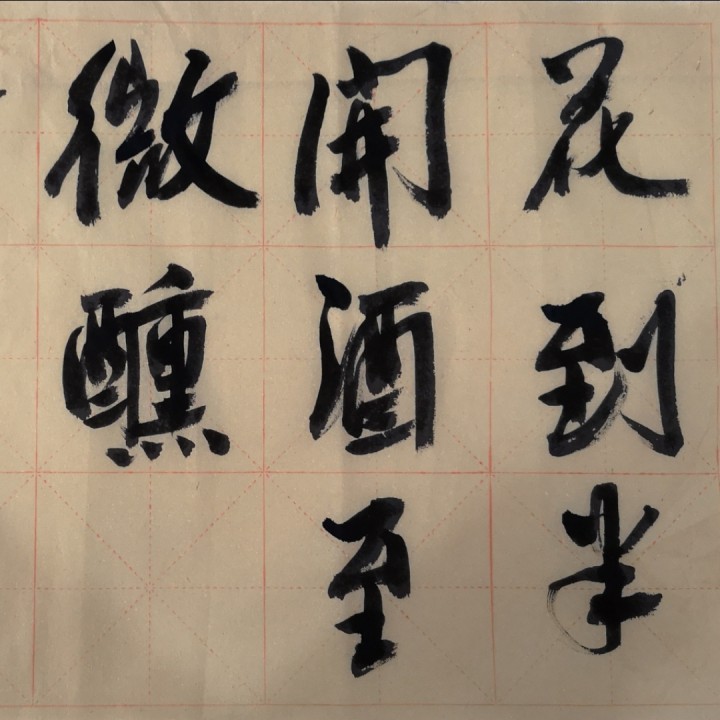 花到半
開酒至
微醺